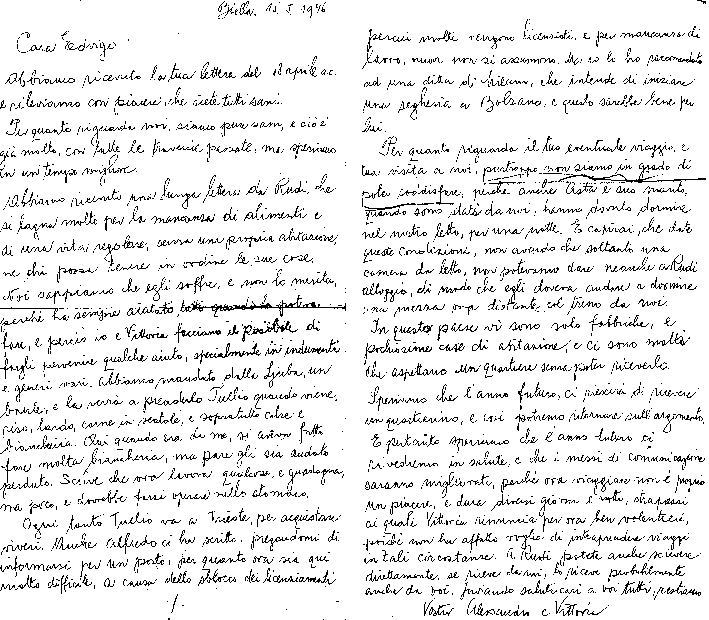 Biella, 12.5.1946
Cara Edvige
Abbiamo ricevuto la tua lettera del 18 aprile a.c.
e rileviamo con piacere, che siete tutti sani.
Per quanto riguarda noi, siamo pure sani, e ciò è
già molto, con tutte le traversie passate, ma speriamo
in un tempo miglior.
Abbiamo ricevuto una lunga lettera da Rudi, che
si lagna molto per la mancanza di alimenti e
di una vita regolare, senza una propria abitazione,
ne chi possa tenere in ordine le sue cose.
Noi sappiamo che egli soffre, e non lo merita,
perchè ha sempre aiutato tutti quando lo poteva
fare, e perciò io e Vittoria facciamo il possibile di
fargli pervenire qualche aiuto, specialmente in indumenti
e generi vari. Abbiamo mandato dalla Ljuba, un
baule, e la verrà a prenderlo Tullio quando viene,
riso, lardo, carne in scatole, e sopratutto calze e
biancheria. Qui quando era da me, si aveva fatto
fare molta biancheria, ma pare gli sia andato
perduto. Scrive che ora lavora qualcosa, e guadagna,
ma poco, e dovrebbe farsi operare nello stomaco.
Ogni tanto Tullio va a Trieste, per acquistare
viveri. Anche Alfredo ci ha scritto pregandomi di
informarsi per un posto, per quanto ora sia qui
molto difficile, a causa dello sblocco dei licenziamenti
1.
perciò molti vengono licenziati, e per mancanza di
lavoro, nuovi non si assumono. Ma io lo ho raccomandato
ad una ditta di Milano, che intende di iniziare
una segheria a Bolzano, e questo sarebbe bene per
lui.
Per quanto riguarda il tuo eventuale viaggio, e
tua visita a noi, purtroppo non siamo in grado di
soddisfare, perchè anche Asta e suo marito,
quando sono stati da noi, hanno dovuto dormire
nel nostro letto, per una notte. E capirai, che date
queste condizioni, non avendo che soltanto una
camera da letto, non potevamo dare neanche a Rudi
alloggio, di modo che egli doveva andare a dormire
una mezza ora distante, col treno da noi.
In questo paese vi sono solo fabbriche, e
pochissime case di abitazione, e ci sono molti
che aspettano un quartiere senza poter riceverlo.
Speriamo che l'anno futuro, ci riescirà di ricevere
un quartierino, e così potremo ritornare sull'argomento.
E pertanto speriamo che l'anno futuro ci
rivedremo in salute, e che i mezzi di comunicazione
saranno migliorati, perchè ora viaggiare non è proprio
un piacere, e dura diversi giorni e notti, strapazzi
ai quali Vittoria rinuncia per ora ben volentieri,
poichè non ha affatto voglia di intraprendere viaggi
in tali circostanze. A Rudi potete anche scrivere
direttamente, se riceve da noi, lo riceve probabilmente
anche da voi. Inviando saluti cari a voi tutti, restiamo
Vostri Alessandro e Vittoria